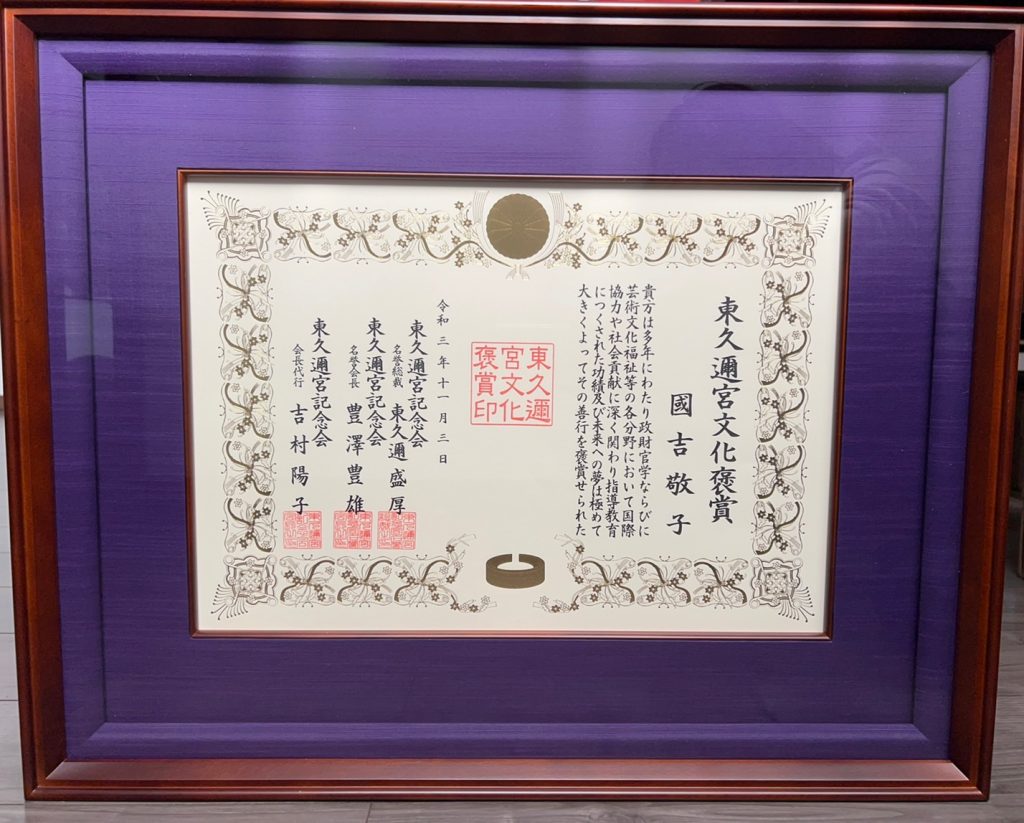 東久邇宮文化褒賞
國吉敬子
貴方は多年にわたり政財官学ならびに
芸術文化福祉等の各分野において国際
協力や社会貢献に深く関わり指導教育
につくされた功績及び未来への夢は極めて
大きくよってその善行を褒賞せられた
東久邇
宮文化
褒賞印
令和三年十一月三日
東久邇宮記念会
名誉総裁 東久邇盛厚
東久邇宮記念会
名誉会長 豊澤豊雄
東久邇宮記念会
会長代行 吉村陽子